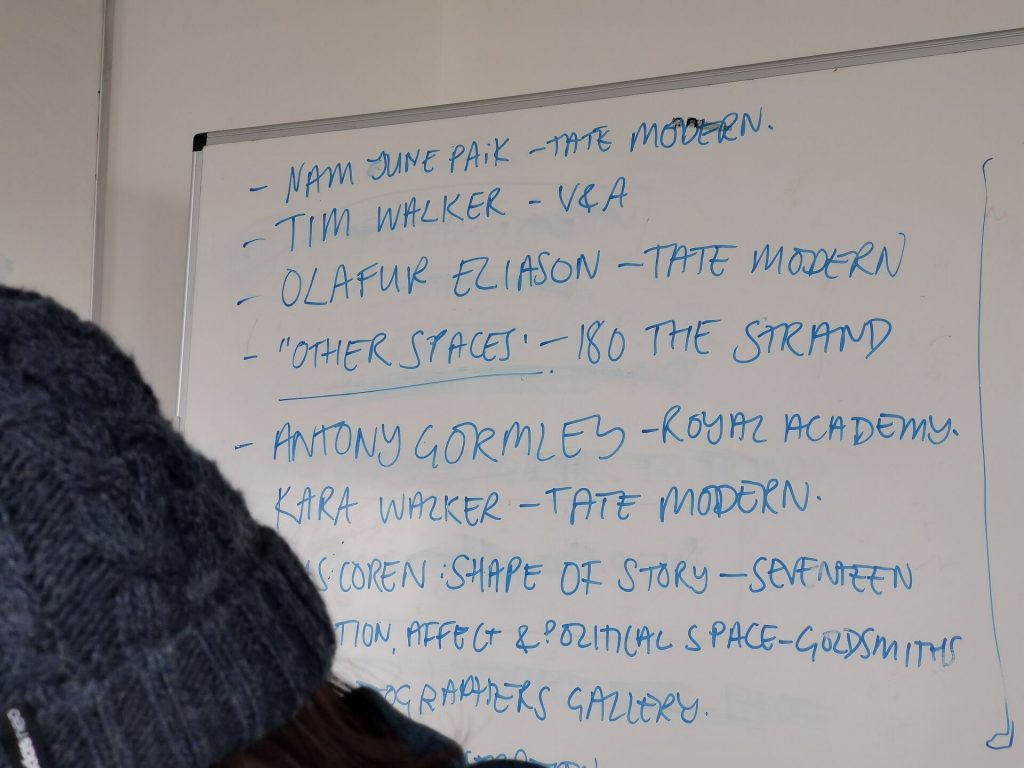 - NAM JUNE PAIK - TATE MODERN.
- TIM WALKER - V&A
- OLAFUR ELIASON - TATE MODERN
- "OTHER SPACES". - 180 THE STRAND
- ANTONY GORMLEY - ROYAL ACADEMY.
KARA WALKER - TATE MODERN.
COREN : SHAPE OF STORY - SEVENTEEN
TION, AFFECT & POLITICAL SPACE - GOLDSMITHS
OGRAPHERS GALLERY.